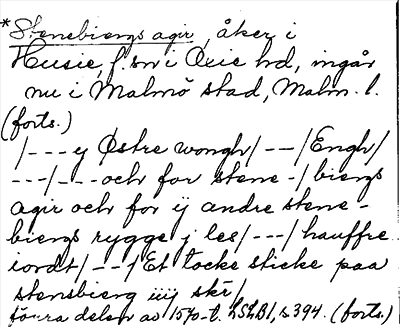 *Stenebiergs agir, åker i
Husie, f. sn i Oxie hd, ingår
nu i Malmö stad, Malm. l.
(forts.)
/---y Østre wongh/--/Engh/
---/---och for stene-/biergs
agir och for ij andre stene-
biergs rygge j les/---/hauffre
iordt/---/Et tocke sticke paa
stensbierg iiij skr/
förra delen av 1570-t. LSLB1, s. 394. (forts.)